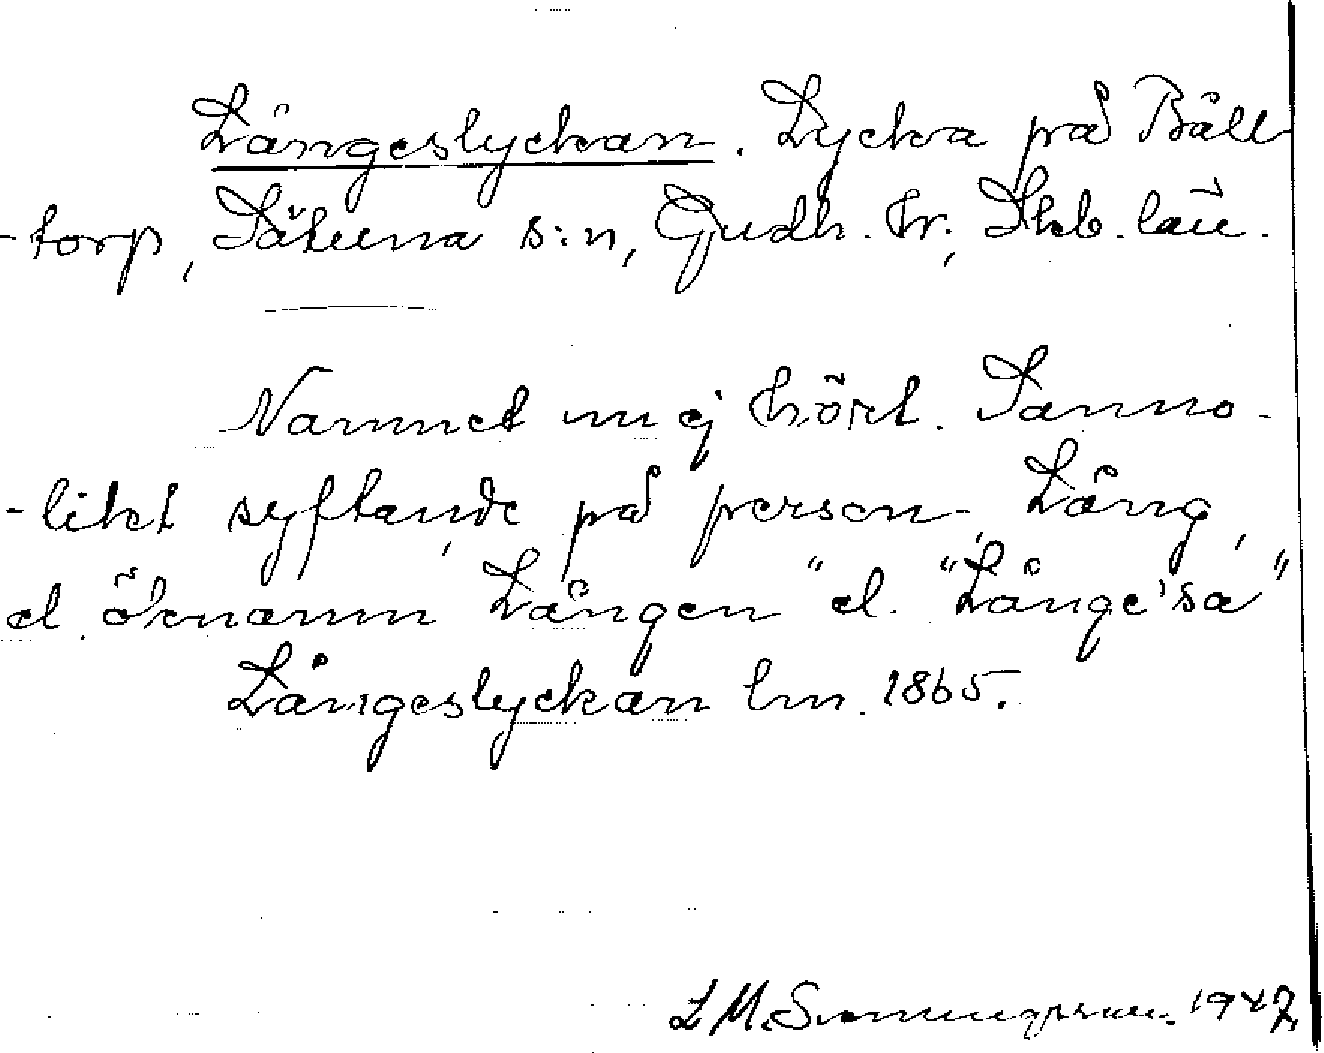 Långeslyckan. Lycka på Bäll-
-torp, Sätuna s:n, Gudh. hr., Skb. län.
Namnet nu ej hört. Sanno-
-likt syftande på person Lång,
el. öknamn Lången" el. "Långe'sa"
Långeslyckan lm. 1865.
L M. Svenungsson. 1947